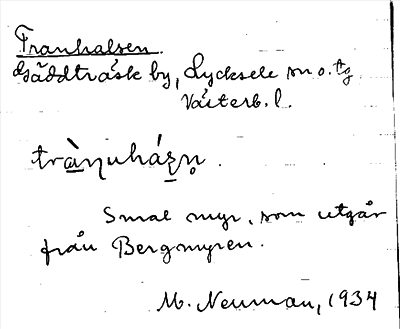 Tranhalsen.
Gäddträsk by, Lycksele sn o. tg
Västerb. l.
Smal myr, som utgår
från Bergmyren.
M. Neuman, 1934